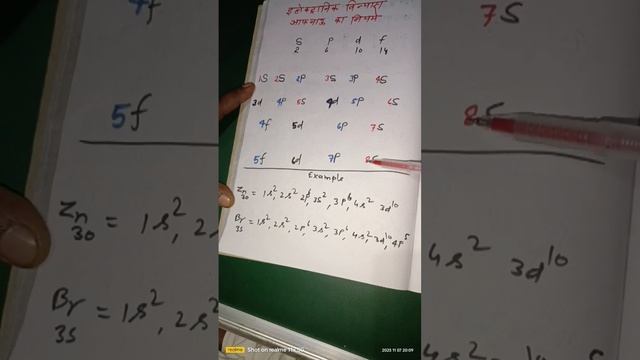 इलेक्ट्रानिक विन्यास
आफबाऊ का नियम
S P d f
2 6 10 14
1S 2S 2P 3S 3P 4S
3d 4P 5S 4d 5P 6S
4f 5d 6P 7S
5f 6d 7P 8S
Example
Zn 30 = 1s², 2s² 2p⁶ 3s², 3p⁶, 4s² 3d¹⁰
Br 35 = 1s², 2s², 2p⁶ 3s², 3p⁶, 4s², 3d¹⁰, 4p⁵
realme Shot on realme
2025 11 07 20:09